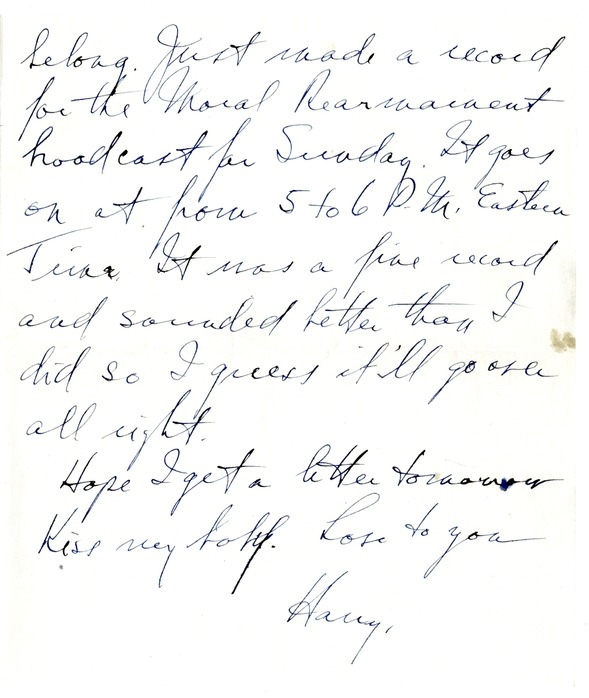 belong. Just made a record
for the Moral Rearmament
broadcast for Sunday. It goes
on at from 5 to 6 P.M. Eastern
Time. It was a fine record
and sounded better than I
did so I guess it'll go over
all right.
Hope I get a letter tomorrow
Kiss my baby. Love to you
Harry.